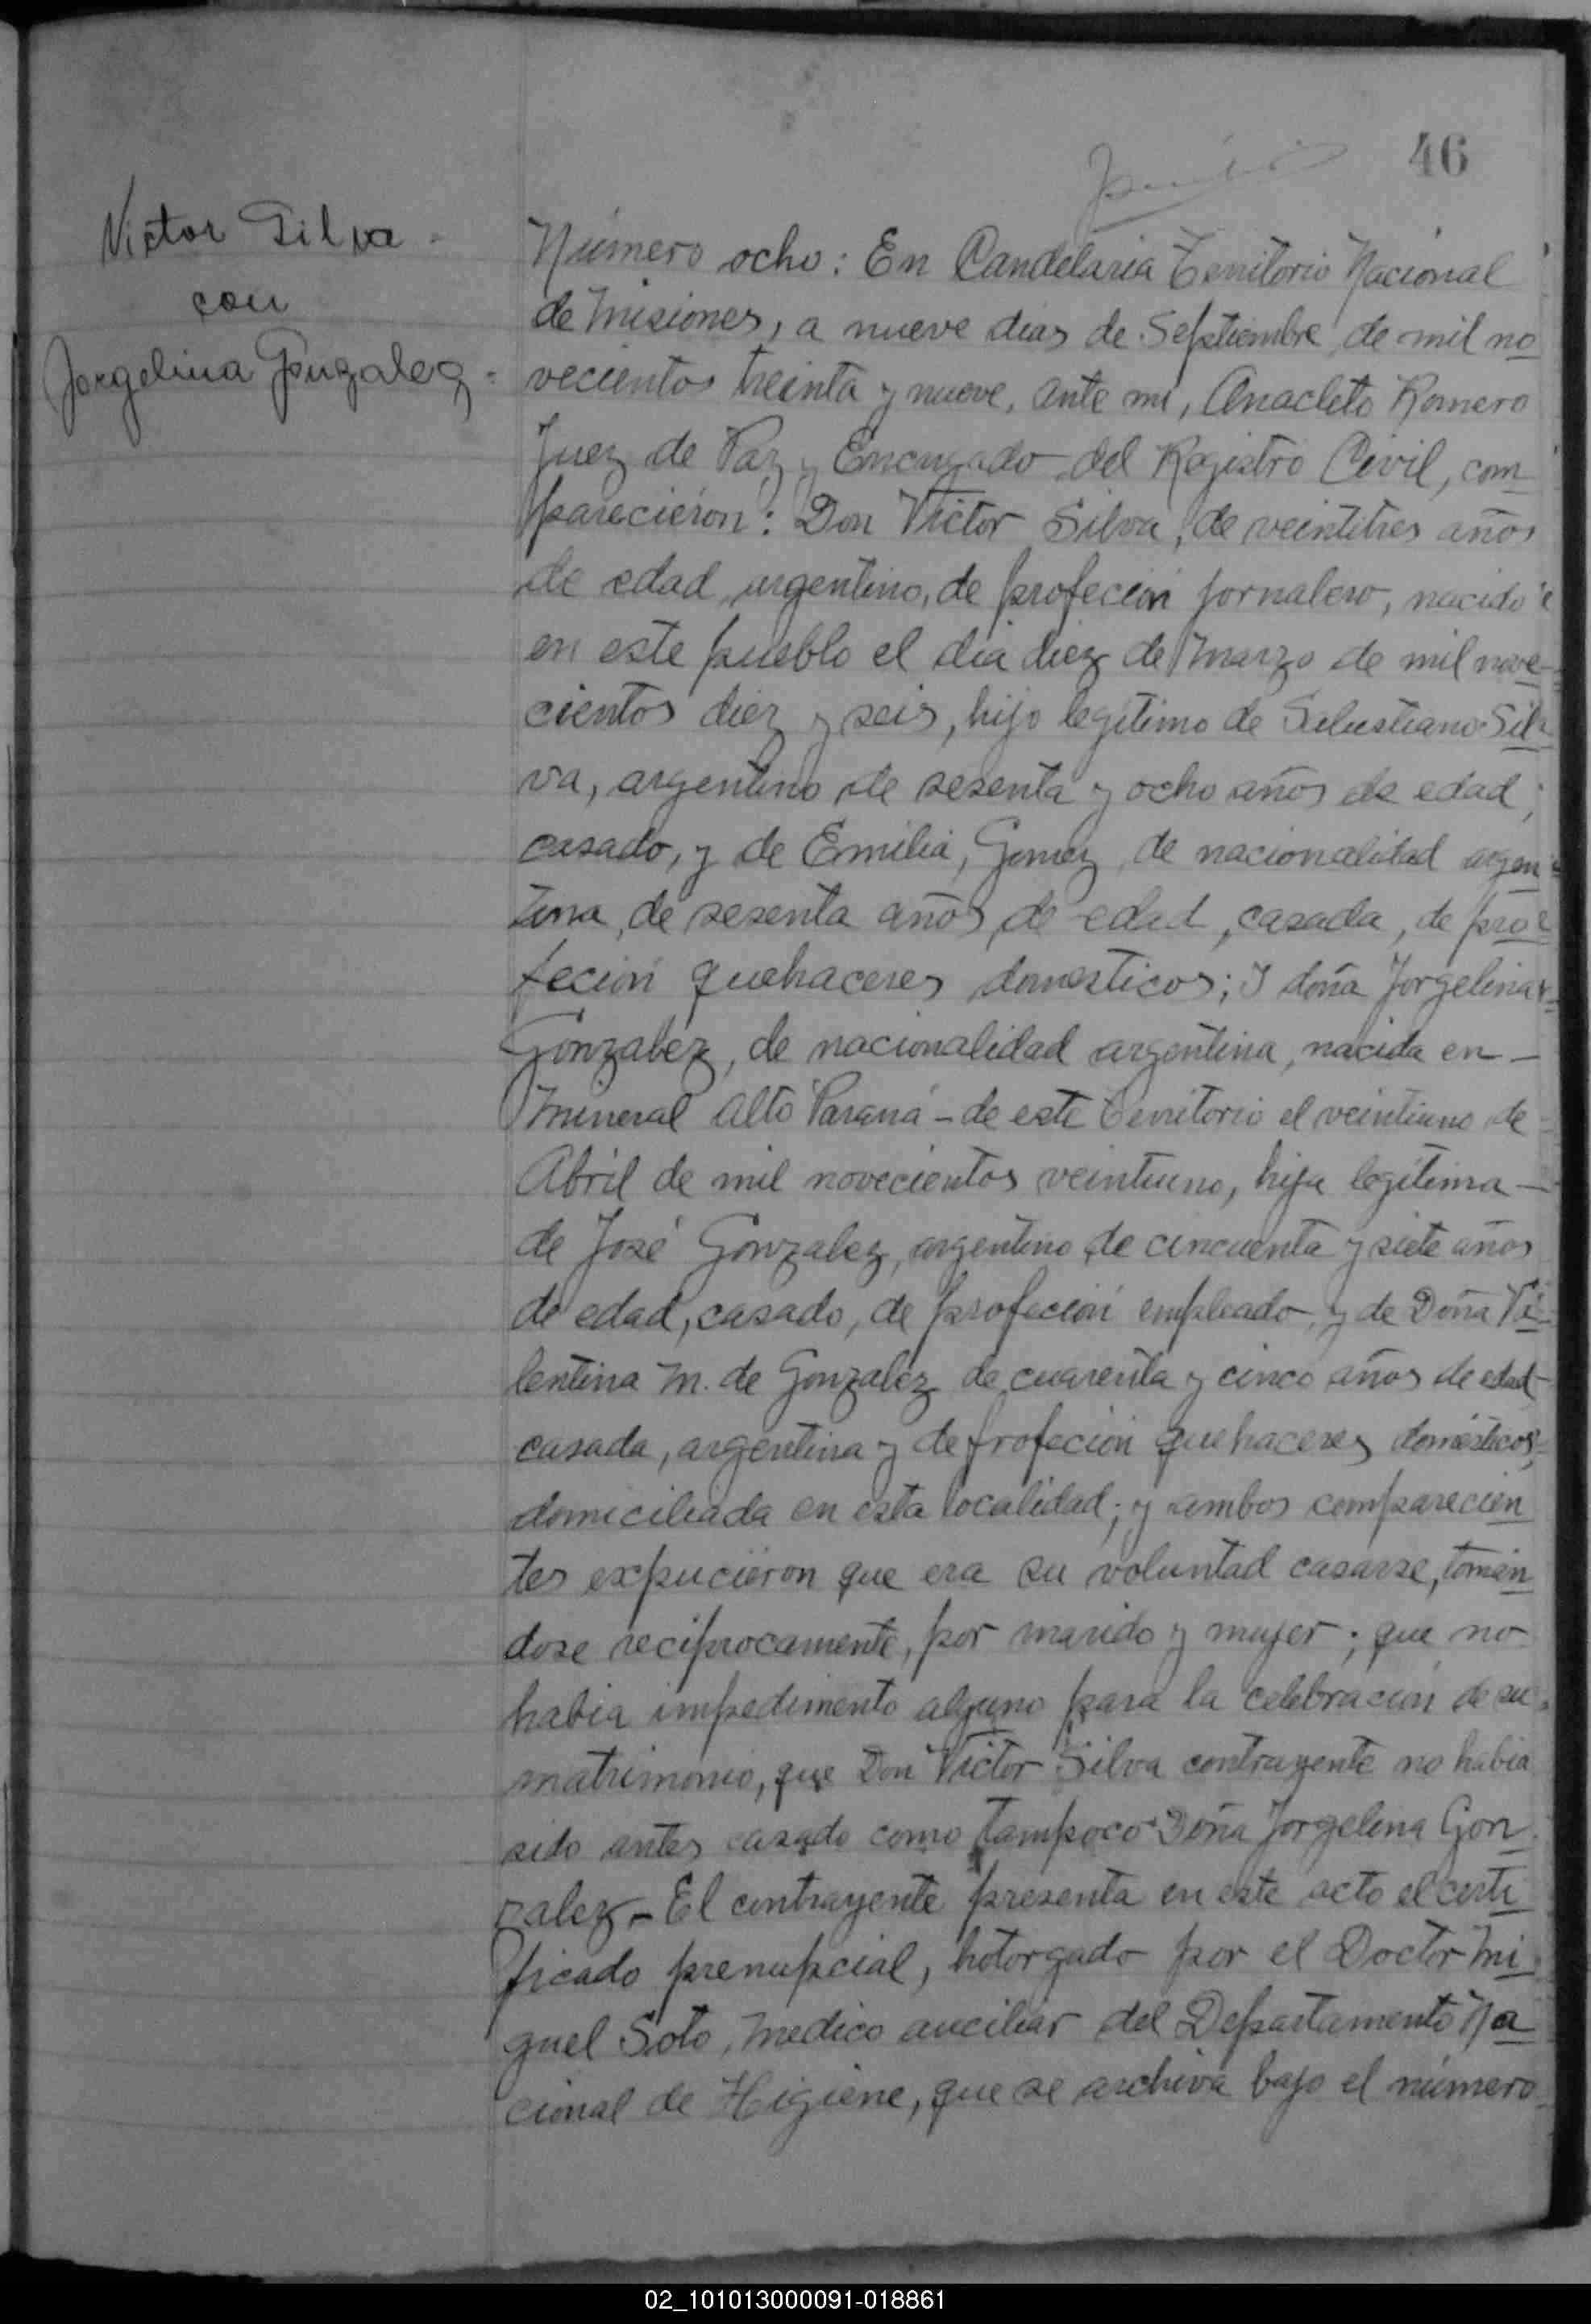 46
Victor Silva -
con
Jorgelina Gonzalez -
Número ocho: En Candelaria Territorio Nacional
de Misiones, a nueve dias de Septiembre de mil no
vecientos treinta y nueve, ante mi, Anacleto Romero
Juez de Paz y Encargado del Registro Civil, com
parecieron: Don Victor Silva, de veintitres años
de edad, argentino, de profeción jornalero, nacido
en este pueblo el día diez de Marzo de mil nove-
cientos diez y seis, hijo legítimo de Salustiano Sil-
va, argentino de sesenta y ocho años de edad,
casado, y de Emilia, Gomez, de nacionalidad argen
tina, de sesenta años de edad, casada, de pro
feción quehaceres domesticos; y doña Jorgelina
Gonzalez, de nacionalidad argentina, nacida en -
Mineral Alto Paraná - de este Territorio el veintiuno de
Abril de mil novecientos veintiuno, hija legítima -
de José Gonzalez, argentino de cincuenta y siete años
de edad, casado, de profeción empleado, y de Doña
lentina M. de Gonzalez de cuarenta y cinco años de edad-
casada, argentina y de profeción quehaceres domésticos,
domiciliada en esta localidad; y ambos comparecien
tes expucieron que era su voluntad casarse, toman
dose reciprocamente, por marido y mujer; que no
habia impedimento alguno para la celebración de su
matrimonio, que Don Victor Silva contrayente no habia
sido antes casado como tampoco Doña Jorgelina Gon
zalez. - El contrayente presenta en este acto el certi
ficado prenupcial, hotorgado por el Doctor Mi
guel Soto, Medico auciliar del Departamento Na
cional de Higiene, que se archiva bajo el número
02_101013000091-018861